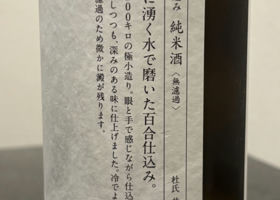 み 純米酒〈無濾過〉
に湧く水で磨いた百合仕込み。
００キロの極小造り。眼と手で感じながら仕込
しつつも、深みのある味に仕上げました。冷でよ
濾過のため微かに澱が残ります。
杜氏